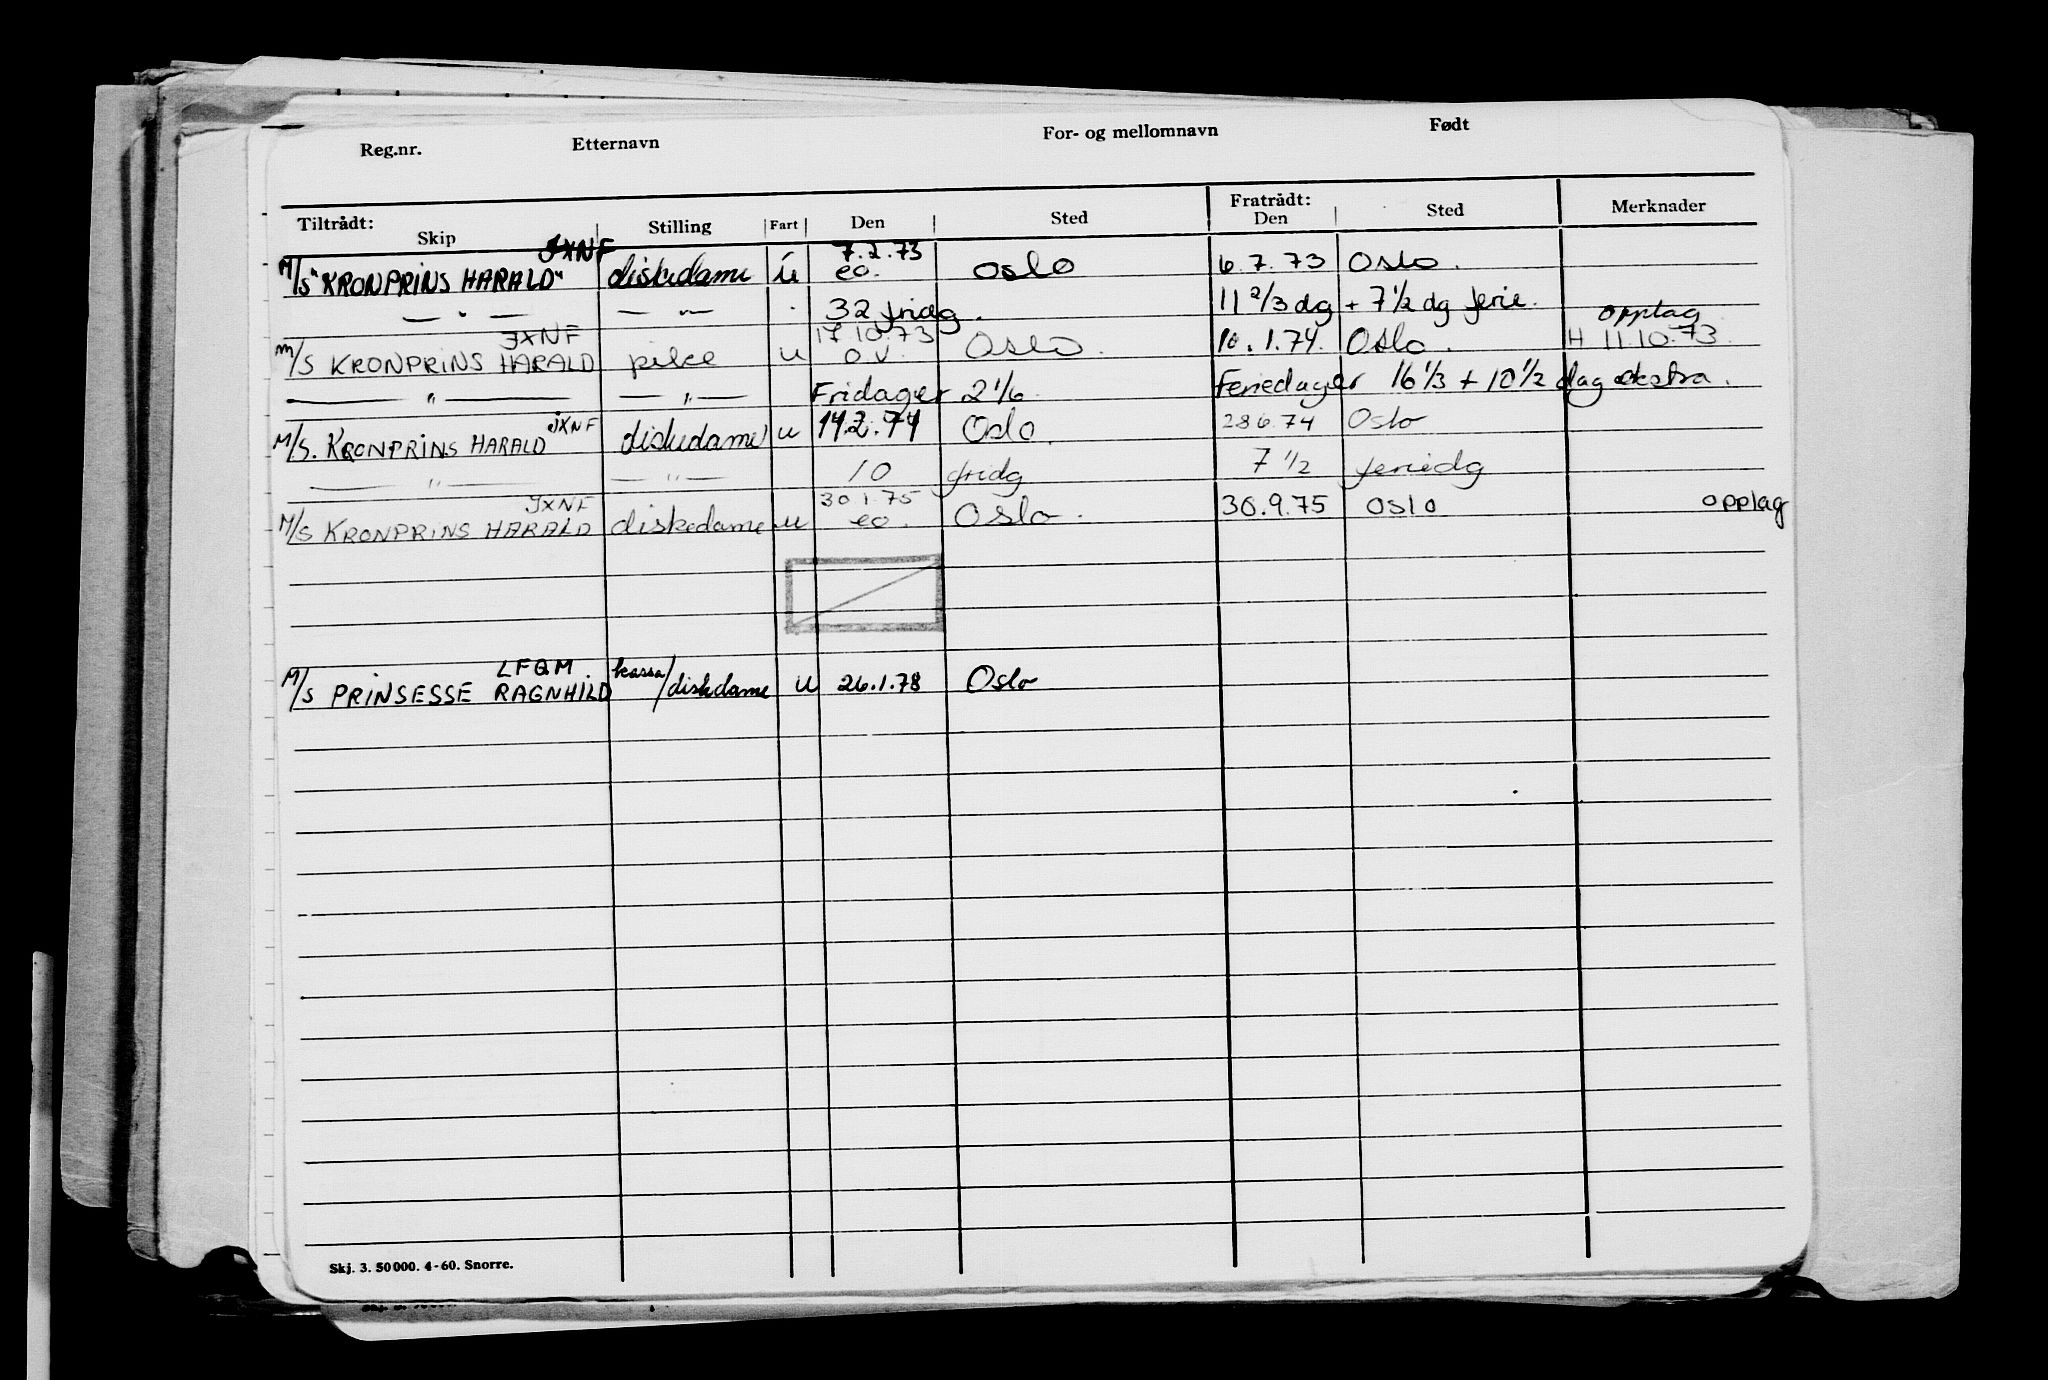 Reg.nr. Etternavn For- og mellomnavn Født
Tiltrådt: Fratrådt:
Skip Stilling Fart Den Sted Den Sted Merknader
JXNF 7.2.73
M/S "KRONPRINS HARALD" diskedame u eo. Oslo 6.7.73 Oslo.
— " — — " — 32 fridg. 11 2/3 dg + 7 1/2 dg ferie.
JXNF 17.10.73 opplag
M/S KRONPRINS HARALD pike u o.v. Oslo. 10.1.74. Oslo. H 11.10.73.
— " — — " — Fridager 2 1/6 Feriedager 16 1/3 + 10 1/2 dag ekstra.
JXNF
M/S. KRONPRINS HARALD diskedame u 14.2.74 Oslo. 28.6.74 Oslo
— " — — " — 10 fridg 7 1/2 feriedg
JXNF 30.1.75
M/S KRONPRINS HARALD diskedame u eo. Oslo. 30.9.75 Oslo opplag
LFQM.
M/S PRINSESSE RAGNHILD kassa/diskdame u 26.1.78 Oslo
Skj. 3. 50 000. 4-60. Snorre.